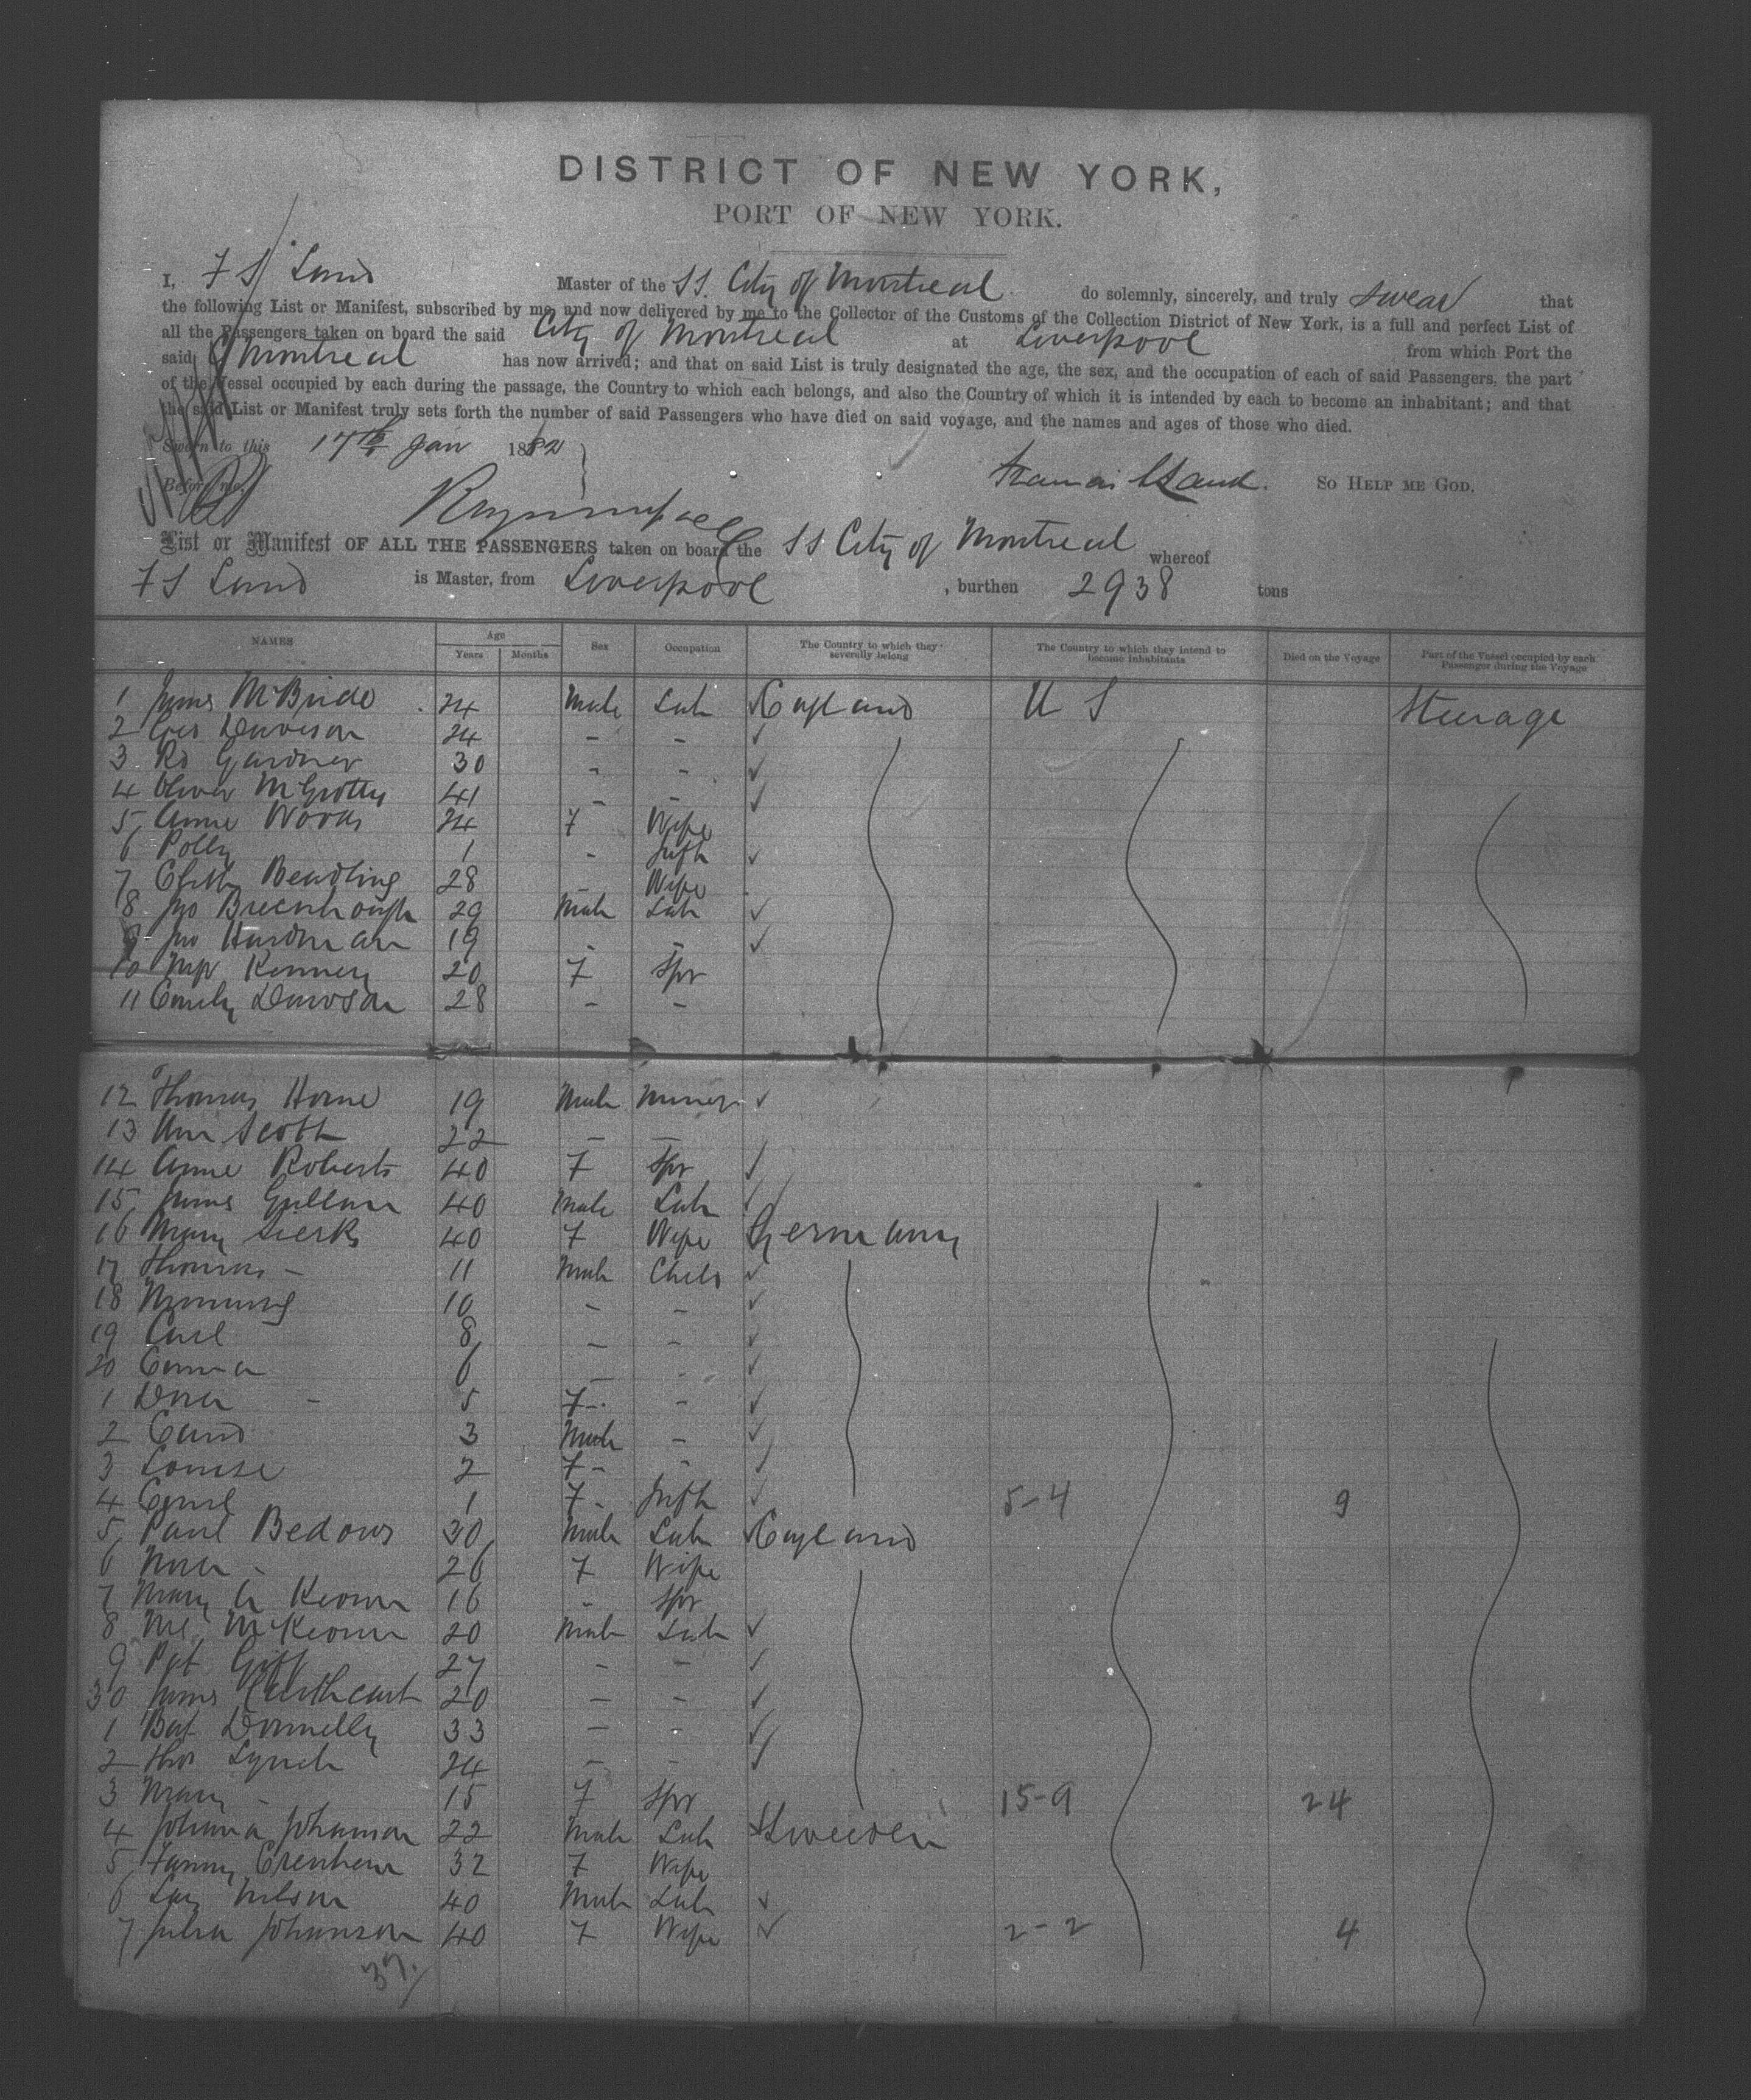 DISTRICT OF NEW YORK,
PORT OF NEW YORK.
I, F S Land Master of the SS. City of Montreal do solemnly, sincerely, and truly swear that
the following List or Manifest, subscribed by me, and now delivered by me to the Collector of the Customs of the Collection District of New York, is a full and perfect List of
all the Passengers taken on board the said City of Montreal at Liverpool from which Port the
said C of Montreal has now arrived; and that on said List is truly designated the age, the sex, and the occupation of each of said Passengers, the part
of the Vessel occupied by each during the passage, the Country to which each belongs, and also the Country of which it is intended by each to become an inhabitant; and that
the said List or Manifest truly sets forth the number of said Passengers who have died on said voyage, and the names and ages of those who died.
Sworn to this 17th Jan 1882
Before me, Francis S Land. SO HELP ME GOD.
List or Manifest OF ALL THE PASSENGERS taken on board the SS City of Montreal whereof
F S Land is Master, from Liverpool, burthen 2938 tons
NAMES Age Years Months Sex Occupation The Country to which they severally belong The Country to which they intend to become inhabitants Died on the Voyage Part of the Vessel occupied by each Passenger during the Voyage
1 James McBride 24 Male Lab England U S Steerage
2 Geo Davison 24 - -
3 Rd Gardner 30 - -
4 Oliver McGrotty 41 - -
5 Annie Woods 24 F Wife
6 Polly 1 - Inft
7 Beadling 28 - Wife
8 Jno 29 Male Lab
9 Jno Hardman 19 - -
10 Kennery 20 F Spr
11 Emily Dawson 28 - -
12 Thomas Horne 19 Male Miner
13 Wm Scott 22 - -
14 Annie Roberts 40 F Spr
15 James 40 Male Lab
16 Mary Sierks 40 F Wife Germany
17 Thomas - 11 Male Child
18 10 - -
19 Carl 8 - -
20 Emma 6 - -
1 Dora - 5 F - -
2 3 Male -
3 Louise 2 F - -
4 1 F - Inft 5-4 9
5 Paul Bedows 30 Male Lab England
6 Nora - 26 F Wife
7 Mary A Keown 16 - Spr
8 McKeown 20 Male Lab
9 Pat 27 - -
30 James Cathcart 20 - -
1 Bat Donnelly 33 - -
2 Thos Lynch 24 - -
3 Mary - 15 F Spr 15-9 24
4 Johana Johanson 22 Male Lab Sweden
5 Fanny 32 F Wife
6 Lars Nilson 40 Male Lab
7 Julia Johanson 40 F Wife 2-2 4
37.